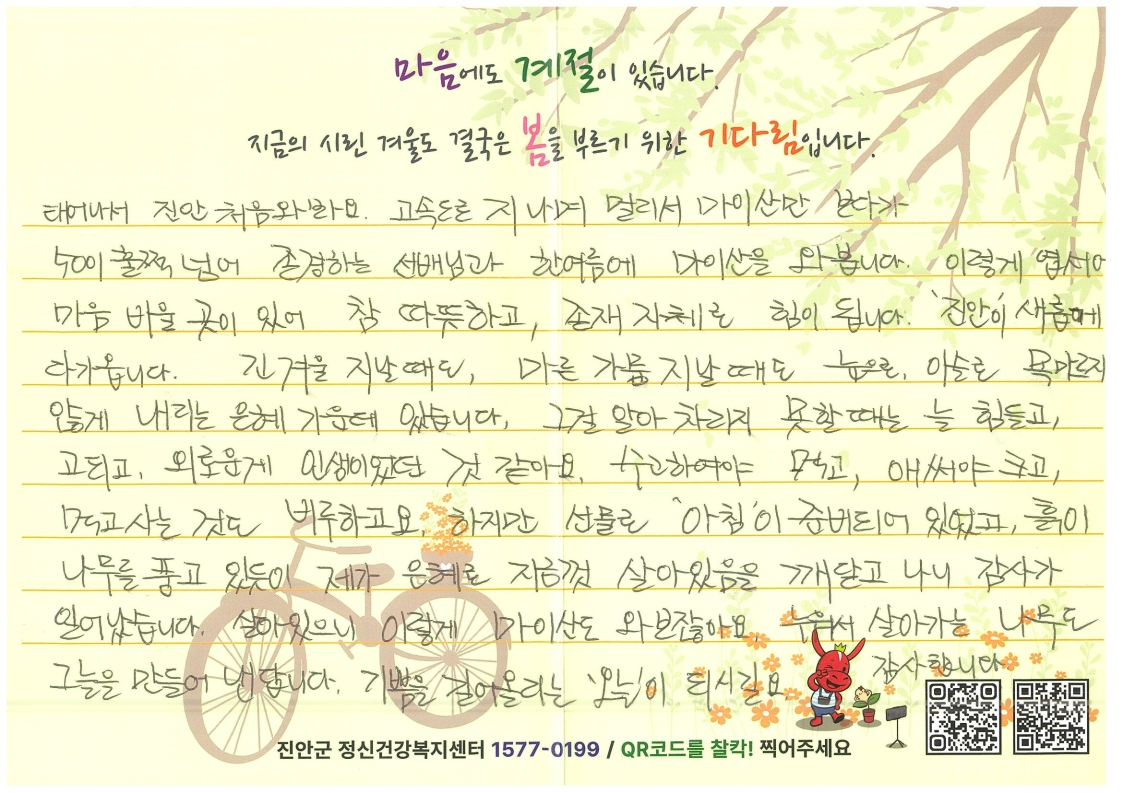 마음에도 계절이 있습니다.
지금의 시린 겨울도 결국은 봄을 부르기 위한 기다림입니다.
태어나서 진안 처음와봐요. 고속도로 지나며 멀리서 마이산만 보다가
50이 훌쩍 넘어 존경하는 선배님과 한여름에 마이산을 와 봅니다. 이렇게 엽서에
마음 비울 곳이 있어 참 따뜻하고, 존재 자체로 힘이 됩니다. '진안'이 새롭게
다가옵니다. 긴 겨울 지날 때도, 마른 가뭄 지날 때도 늘 이슬로 목마르지
않게 내리는 은혜 가운데 있습니다, 그걸 알아 차리지 못할 때는 늘 힘들고,
고되고, 외로운게 인생이었던 것 같아요. 수고하여야 먹고, 애써야 크고,
먹고 사는 것도 버루하고요, 하지만 선물로 '아침'이 준비되어 있었고, 흙이
나무를 품고 있듯이 제가 은혜로 지금껏 살아있음을 깨닫고 나니 감사가
일어났습니다. 살아있으니 이렇게 마이산도 와보잖아요, 누워서 살아가는 나무도
그늘을 만들어 냅답니다. 기쁨을 길어올리는 '오늘'이 되시길요. 감사합니다
진안군 정신건강복지센터 1577-0199 / QR코드를 찰칵! 찍어주세요